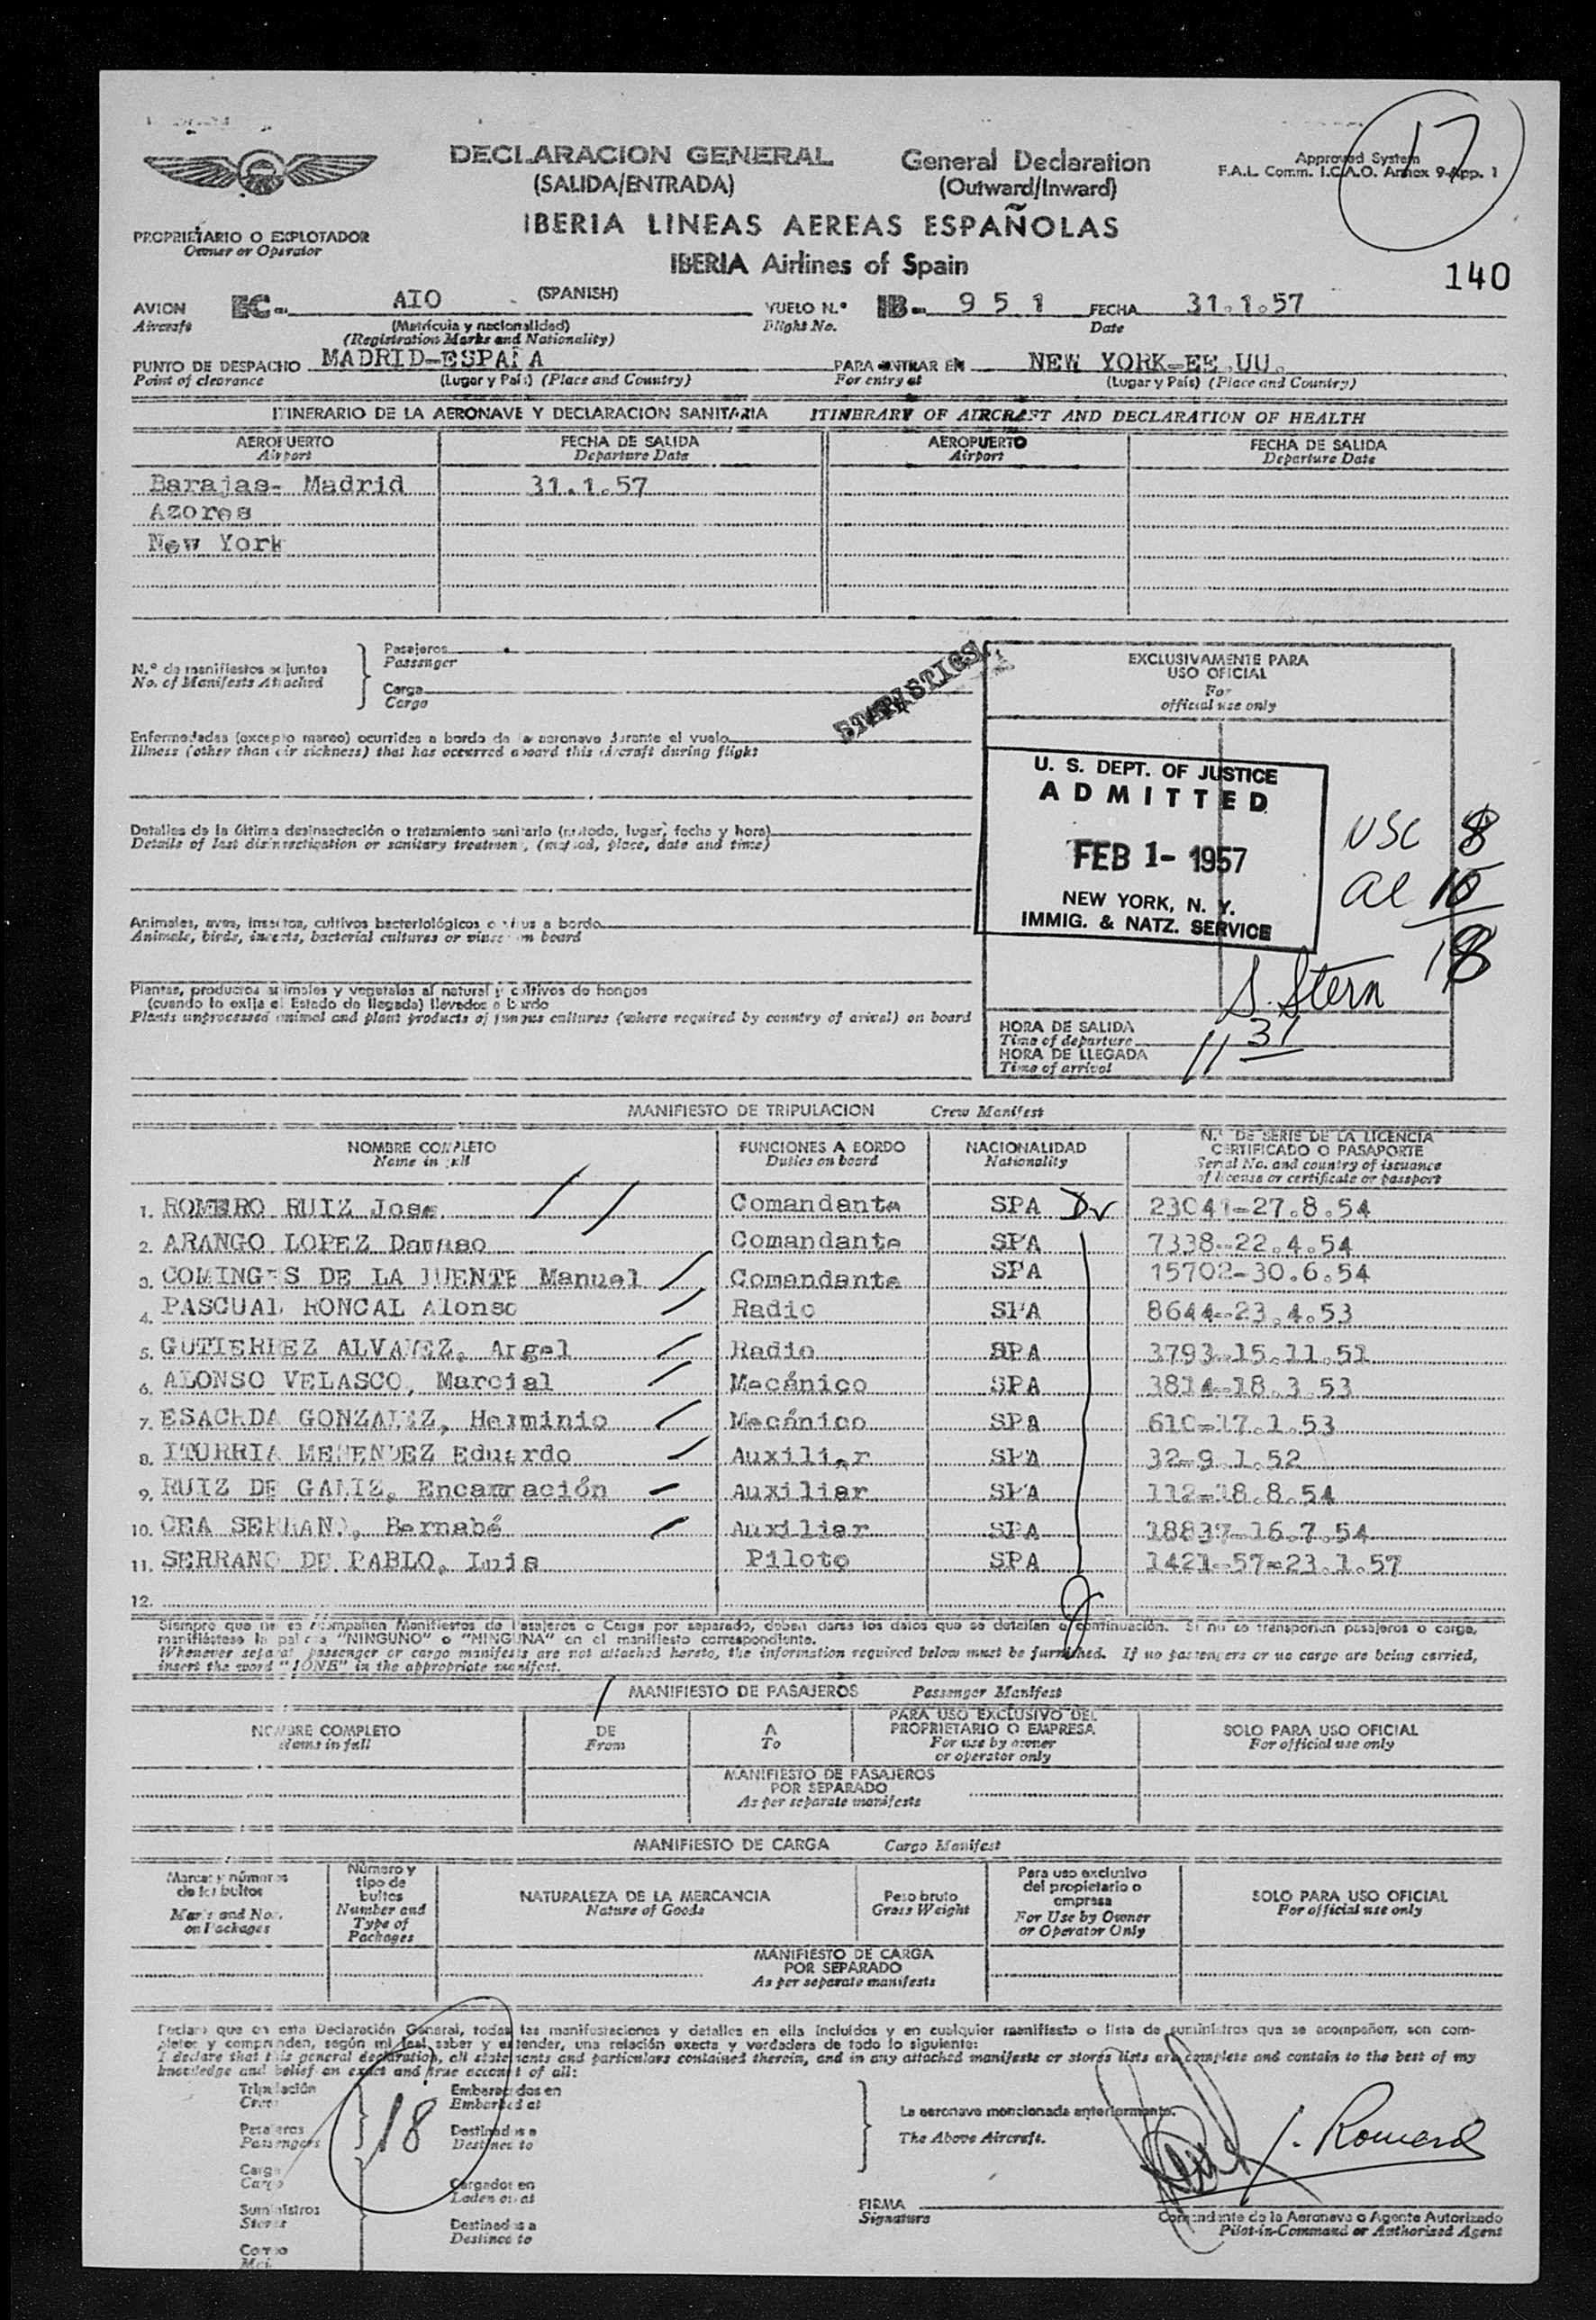 DECLARACION GENERAL
(SALIDA/ENTRADA)
General Declaration
(Outward/Inward)
Approved System
F.A.L. Comm. I.C.A.O. Annex 9-App. 1
17
IBERIA LINEAS AEREAS ESPAÑOLAS
IBERIA Airlines of Spain
PROPRIETARIO O EXPLOTADOR
Owner or Operator
140
AVION EC- AIO (SPANISH) VUELO N.º IB- 9 5 1 FECHA 31.1.57
Aircraft (Matrícula y nacionalidad) Flight No. Date
(Registration Marks and Nationality)
PUNTO DE DESPACHO MADRID-ESPAÑA PARA ENTRAR EN NEW YORK-EE.UU.
Point of clearance (Lugar y País) (Place and Country) For entry at (Lugar y País) (Place and Country)
ITINERARIO DE LA AERONAVE Y DECLARACION SANITARIA ITINERARY OF AIRCRAFT AND DECLARATION OF HEALTH
AEROPUERTO FECHA DE SALIDA AEROPUERTO FECHA DE SALIDA
Airport Departure Date Airport Departure Date
Barajas- Madrid 31.1.57
Azores
New York
N.º de manifiestos adjuntos
No. of Manifests Attached
Pasajeros
Passenger
Carga
Cargo
STATISTICS
EXCLUSIVAMENTE PARA
USO OFICIAL
For
official use only
Enfermedades (excepto mareo) ocurridas a bordo de la aeronave durante el vuelo
Illness (other than air sickness) that has occurred aboard this aircraft during flight
U. S. DEPT. OF JUSTICE
ADMITTED
FEB 1- 1957
NEW YORK, N. Y.
IMMIG. & NATZ. SERVICE
USC 8
al 10
18
Detalles de la última desinsectación o tratamiento sanitario (método, lugar, fecha y hora)
Details of last disinsectization or sanitary treatment, (method, place, date and time)
Animales, aves, insectos, cultivos bacteriológicos o virus a bordo
Animals, birds, insects, bacterial cultures or virus on board
Plantas, productos animales y vegetales al natural y cultivos de hongos
(cuando lo exija el Estado de llegada) llevados a bordo
Plants unprocessed animal and plant products of fungus cultures (where required by country of arival) on board
S. Stern
HORA DE SALIDA
Time of departure
HORA DE LLEGADA
Time of arrival
11 31
MANIFIESTO DE TRIPULACION Crew Manifest
NOMBRE COMPLETO
Name in full
FUNCIONES A BORDO
Duties on board
NACIONALIDAD
Nationality
N.º DE SERIE DE LA LICENCIA
CERTIFICADO O PASAPORTE
Serial No. and country of issuance
of license or certificate or passport
1. ROMERO RUIZ Jose Comandante SPA 23041-27.8.54
2. ARANGO LOPEZ Damaso Comandante SPA 7338-22.4.54
3. COMINGES DE LA FUENTE Manuel Comandante SPA 15702-30.6.54
4. PASCUAL RONCAL Alonso Radio SPA 8644-23.4.53
5. GUTIERREZ ALVAREZ, Angel Radio SPA 3793-15.11.51
6. ALONSO VELASCO, Marcial Mecánico SPA 3814-18.3.53
7. GONZALEZ, Herminio Mecánico SPA 610-17.1.53
8. ITURRIA MENENDEZ Eduardo Auxiliar SPA 32-9.1.52
9. RUIZ DE GAMIZ, Encarnación Auxiliar SPA 112-18.8.54
10. CEA SERRANO, Bernabé Auxiliar SPA 18837-16.7.54
11. SERRANO DE PABLO, Luis Piloto SPA 1421-57-23.1.57
12.
Siempre que no se acompañen Manifiestos de Pasajeros o Carga por separado, deben darse los datos que se detallan a continuación. Si no se transportan pasajeros o carga,
manifiéstese la palabra "NINGUNO" o "NINGUNA" en el manifiesto correspondiente.
Whenever separat passenger or cargo manifests are not attached hereto, the information required below must be furnished. If no passengers or no cargo are being carried,
insert the word "NONE" in the appropriate manifest.
MANIFIESTO DE PASAJEROS Passenger Manifest
NOMBRE COMPLETO
Name in full
DE
From
A
To
PARA USO EXCLUSIVO DEL
PROPRIETARIO O EMPRESA
For use by owner
or operator only
SOLO PARA USO OFICIAL
For official use only
MANIFIESTO DE PASAJEROS
POR SEPARADO
As per separate manifests
MANIFIESTO DE CARGA Cargo Manifest
Marcas y números
de los bultos
Marks and Nos.
on Packages
Número y
tipo de
bultos
Number and
Type of
Packages
NATURALEZA DE LA MERCANCIA
Nature of Goods
Peso bruto
Gross Weight
Para uso exclusivo
del propietario o
empresa
For Use by Owner
or Operator Only
SOLO PARA USO OFICIAL
For official use only
MANIFIESTO DE CARGA
POR SEPARADO
As per separate manifests
Declaro que en esta Declaración General, todas las manifestaciones y detalles en ella incluídos y en cualquier manifiesto o lista de suministros que se acompañen, son com-
pletos y comprenden, según mi leal saber y entender, una relación exacta y verdadera de todo lo siguiente:
I declare that this general declaration, all statements and particulars contained therein, and in any attached manifests or stores lists are complete and contain to the best of my
knowledge and belief an exact and true account of all:
Tripulación
Crew
Pasajeros
Passengers
Carga
Cargo
Suministros
Stores
Correo
18
Embarcados en
Embarked at
Destinados a
Destined to
Cargados en
Laden on at
Destinados a
Destined to
La aeronave mencionada anteriormente.
The Above Aircraft.
J. Romero
FIRMA
Signature
Comandante de la Aeronave o Agente Autorizado
Pilot-in-Command or Authorised Agent